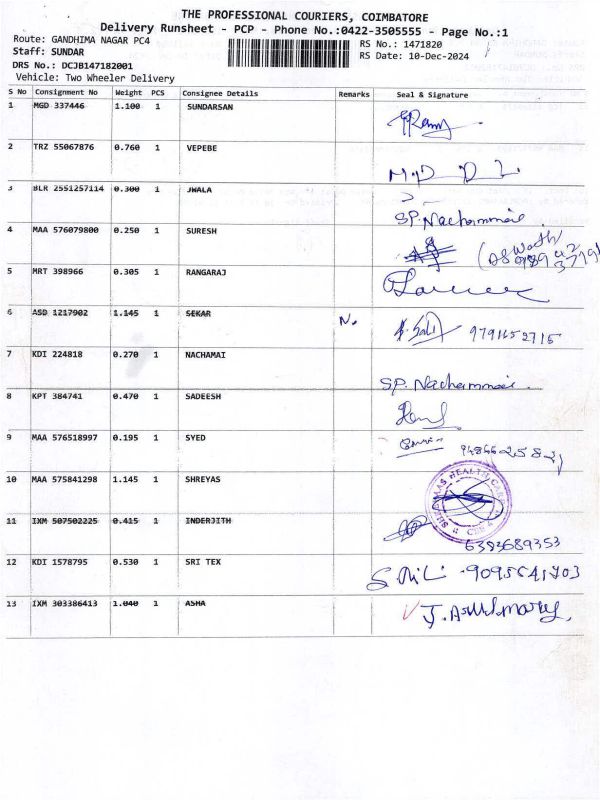 THE PROFESSIONAL COURIERS, COIMBATORE
Delivery Runsheet - PCP - Phone No.:0422-3505555 - Page No.:1
Route: GANDHIMA NAGAR PC4
RS No.: 1471820
Staff: SUNDAR
RS Date: 10-Dec-2024
DRS No.: DCJB147182001
Vehicle: Two Wheeler Delivery
S No Consignment No Weight PCS Consignee Details Remarks Seal & Signature
1 MGD 337446 1.100 1 SUNDARSAN
2 TRZ 55067876 0.760 1 VEPEBE
3 BLR 2551257114 0.300 1 JWALA
SP. Nachammai
4 MAA 576079800 0.250 1 SURESH
5 MRT 398966 0.305 1 RANGARAJ
6 ASD 1217902 1.145 1 SEKAR 9791652715
7 KDI 224818 0.270 1 NACHAMAI SP. Nachammai
8 KPT 384741 0.470 1 SADEESH
9 MAA 576518997 0.195 1 SYED
10 MAA 575841298 1.145 1 SHREYAS
HEALTH CARE
11 IXM 507502225 0.415 1 INDERJITH 6383689353
12 KDI 1578795 0.530 1 SRI TEX
13 IXM 303386413 1.040 1 ASHA